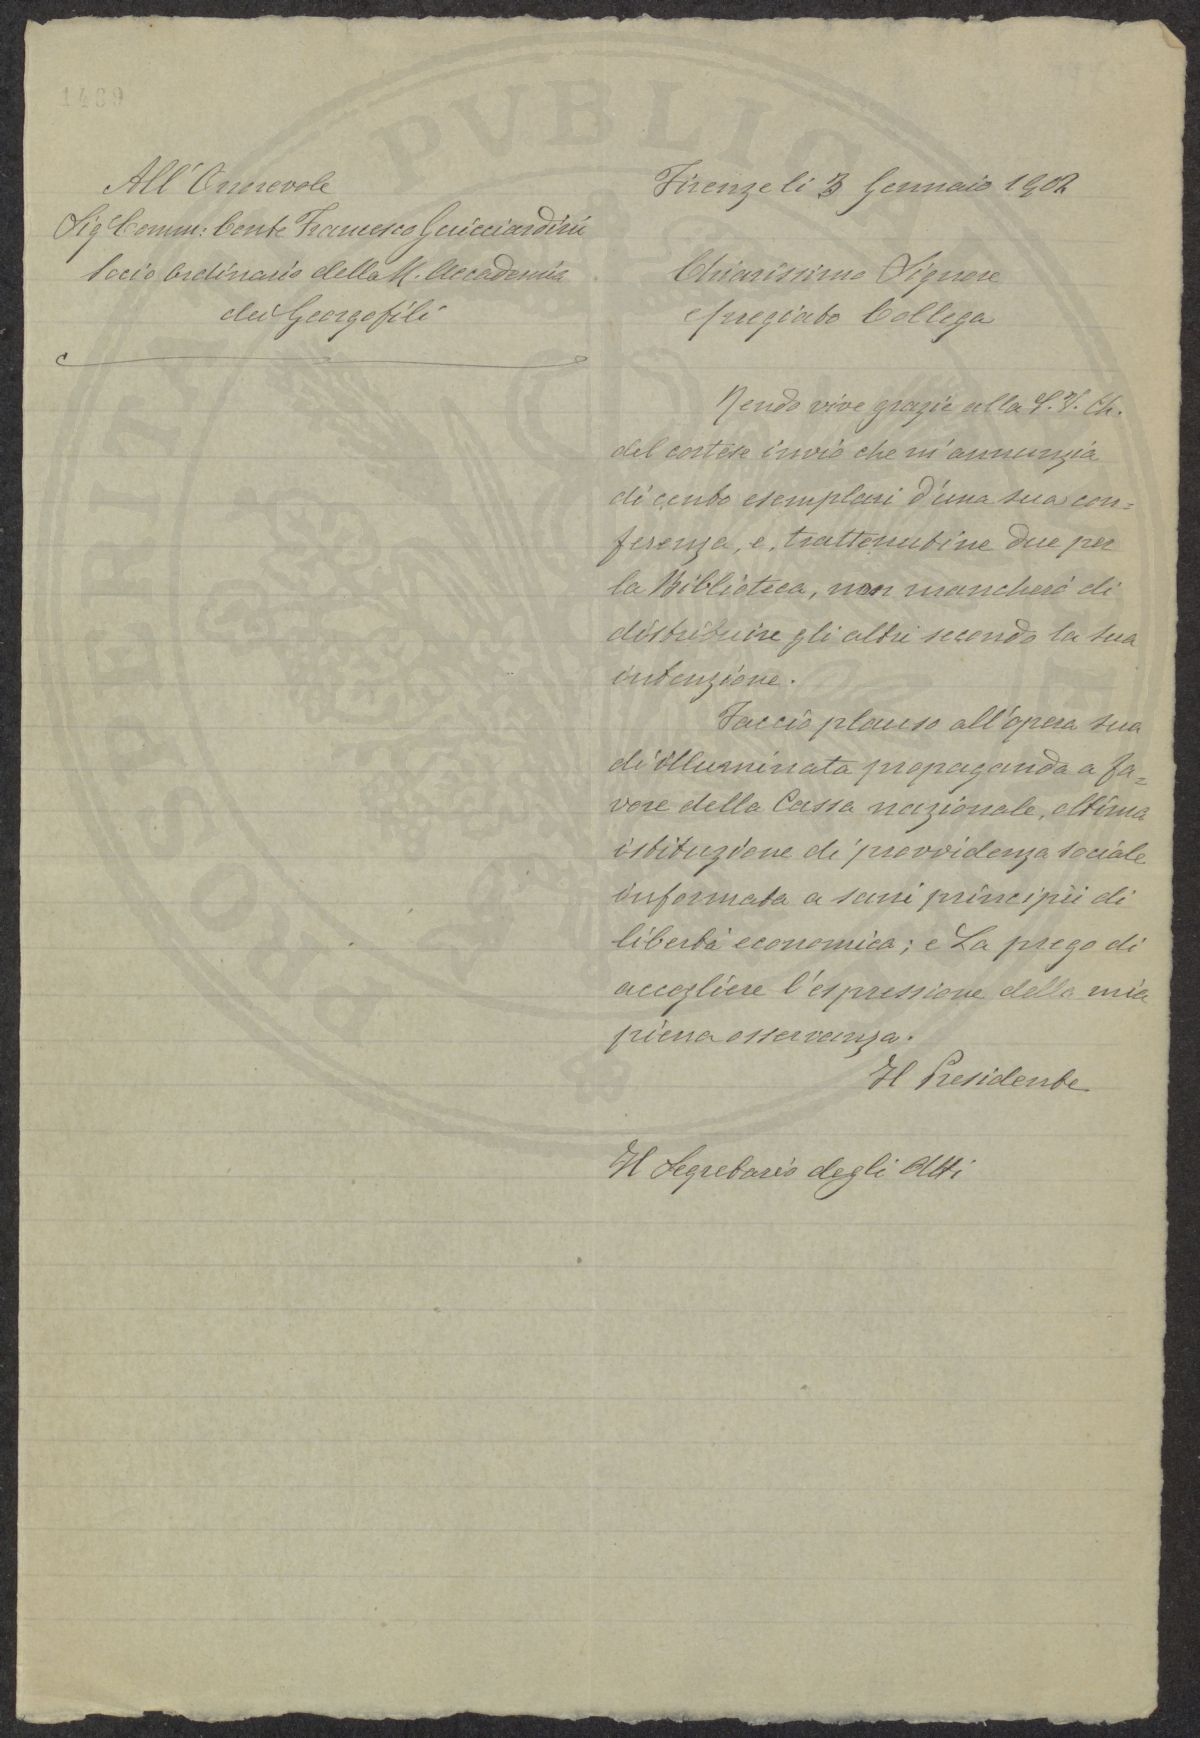 1489
All'Onorevole
Sigr Comm: Conte Francesco Guicciardini
Socio Ordinario della R. Accademia
dei Georgofili
Firenze li 3 Gennaio 1902
Chiarissimo Signore
e pregiato Collega
Rendo vive grazie alla S. V. Ch.
del cortese invio che m'annunzia
di cento esemplari d'una sua con=
ferenza, e, trattenutine due per
la Biblioteca, non mancherò di
distribuire gli altri secondo la sua
intenzione.
Faccio plauso all'opera sua
di illuminata propaganda a fa=
vore della Cassa nazionale, ottima
istituzione di previdenza sociale
informata a sani principii di
libertà economica; e La prego di
accogliere l'espressione della mia
piena osservanza.
Il Presidente
Il Segretario degli Atti